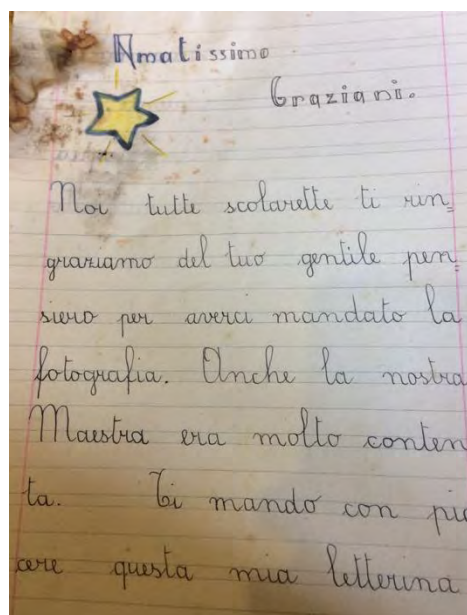 Amatissimo
Graziani.
Noi tutte scolarette ti rin=
graziamo del tuo gentile pen=
siero per averci mandato la
fotografia. Anche la nostra
Maestra era molto conten
ta. Ti mando con pia
cere questa mia letterina